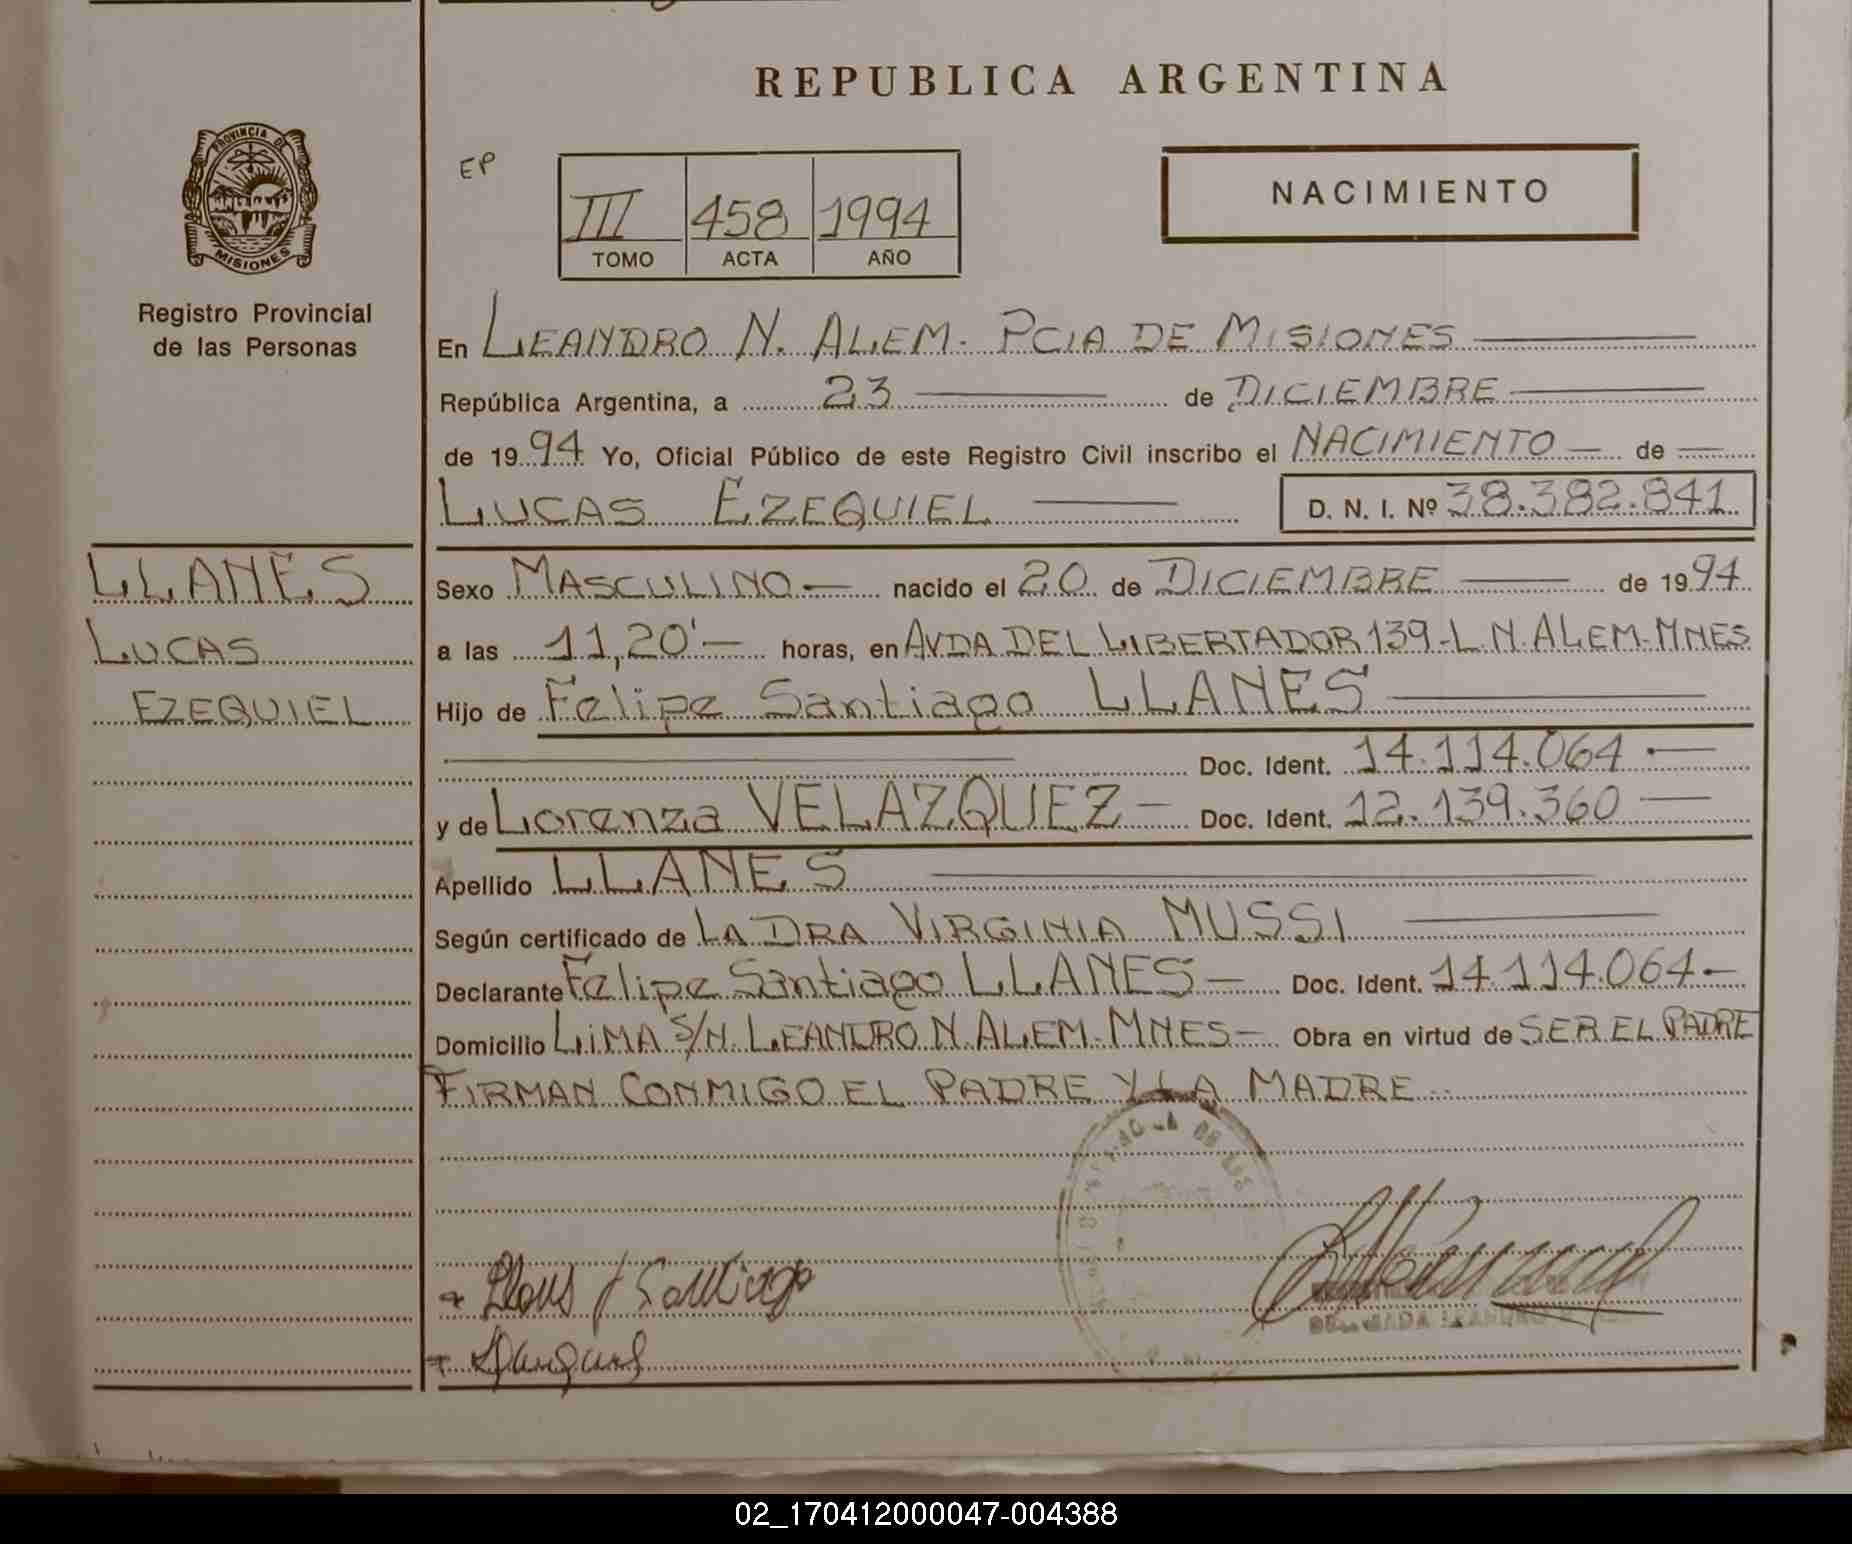 REPUBLICA ARGENTINA
PROVINCIA DE
MISIONES
Registro Provincial
de las Personas
EP
III 458 1994
TOMO ACTA AÑO
NACIMIENTO
En LEANDRO N. ALEM - PCIA DE MISIONES
República Argentina, a 23 de DICIEMBRE
de 1994 Yo, Oficial Público de este Registro Civil inscribo el NACIMIENTO de
LUCAS EZEQUIEL D. N. I. Nº 38.382.841
LLANES
LUCAS
EZEQUIEL
Sexo MASCULINO nacido el 20 de DICIEMBRE de 1994
a las 11,20' horas, en AVDA DEL LIBERTADOR 139-L.N.ALEM-MNES
Hijo de Felipe Santiago LLANES
Doc. Ident. 14.114.064
y de Lorenza VELAZQUEZ Doc. Ident. 12.139.360
Apellido LLANES
Según certificado de LA DRA VIRGINIA MUSSI
Declarante Felipe Santiago LLANES Doc. Ident. 14.114.064
Domicilio LIMA S/N. LEANDRO N. ALEM-MNES Obra en virtud de SER EL PADRE
FIRMAN CONMIGO EL PADRE Y LA MADRE
Santiago
02_170412000047-004388